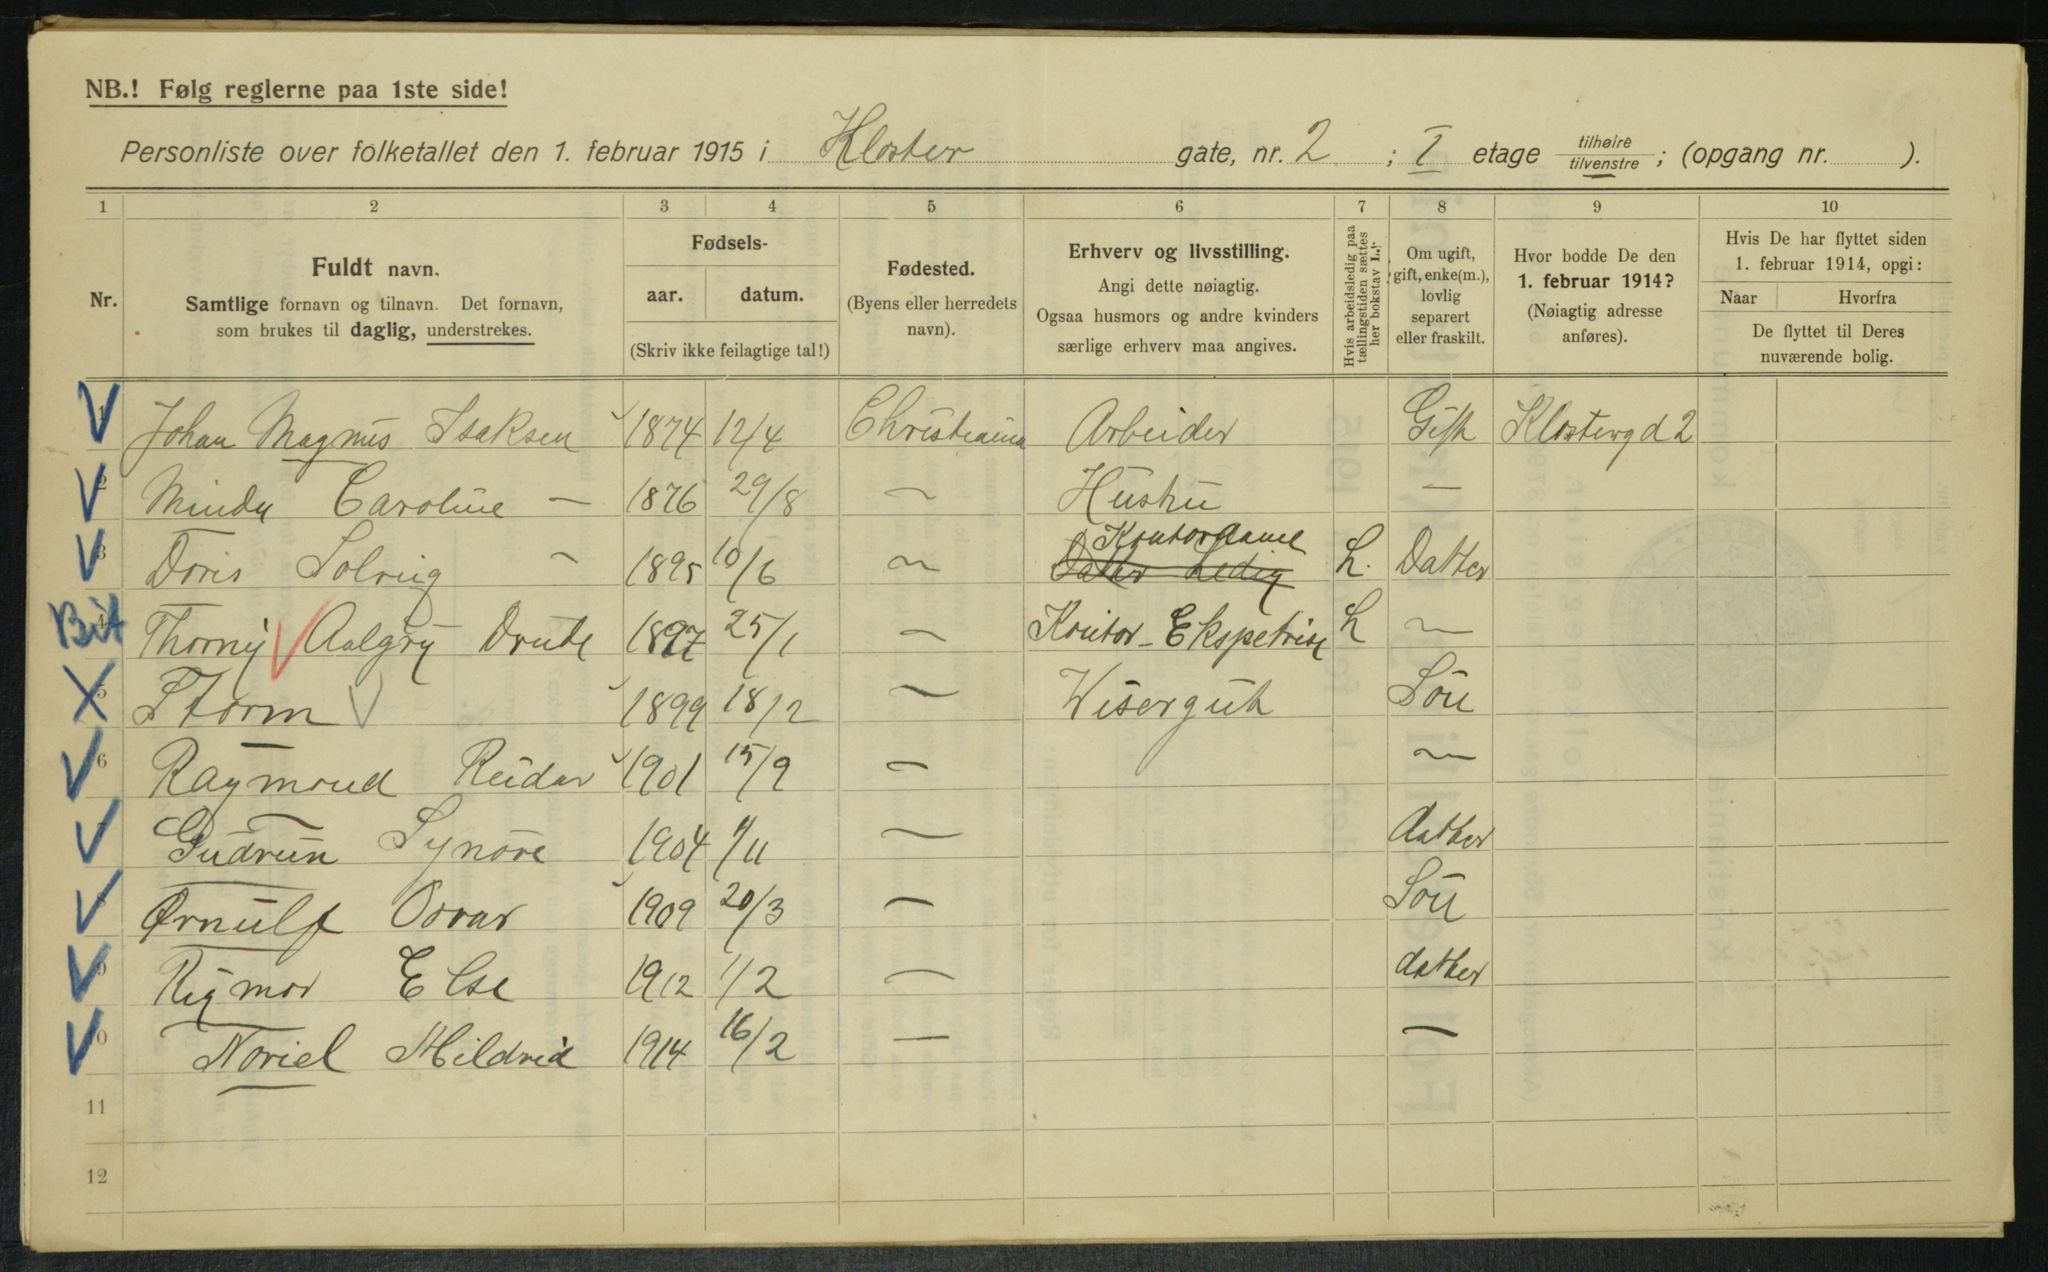 NB.! Følg reglerne paa 1ste side!
Personliste over folketallet den 1. februar 1915 i Kloster gate, nr. 2 ; I etage tilhøire tilvenstre ; (opgang nr. ).
1 2 3 4 5 6 7 8 9 10
Nr.
Fuldt navn.
Samtlige fornavn og tilnavn. Det fornavn,
som brukes til daglig, understrekes.
Fødsels-
aar. datum.
(Skriv ikke feilagtige tal!)
Fødested.
(Byens eller herredets
navn).
Erhverv og livsstilling.
Angi dette nøiagtig.
Ogsaa husmors og andre kvinders
særlige erhverv maa angives.
Hvis arbeidsledig paa
tællingstiden sættes
her bokstav L.
Om ugift,
gift, enke(m.),
lovlig
separert
eller fraskilt.
Hvor bodde De den
1. februar 1914?
(Nøiagtig adresse
anføres).
Hvis De har flyttet siden
1. februar 1914, opgi:
Naar Hvorfra
De flyttet til Deres
nuværende bolig.
1 Johan Magnus Isaksen 1874 12/4 Christiania Arbeider Gift Klostergd 2
2 Caroline — 1876 29/8 — Hustru —
Kontordame
3 Doris Solveig — 1895 10/6 — Datter Ledig L. Datter
Bit 4 Thorny Aalgry Drude 1897 25/1 — Kontor - Ekspetrise L —
5 Storm 1899 18/2 — Wisergut Sön
6 Raymond Reidar 1901 15/9 — —
7 Gudrun Synöve 1904 /11 — datter
8 Ørnulf 1909 20/3 — Sön
9 Rigmor Else 1912 1/2 — datter
10 Noriel Hildrid 1914 16/2 — —
11
12